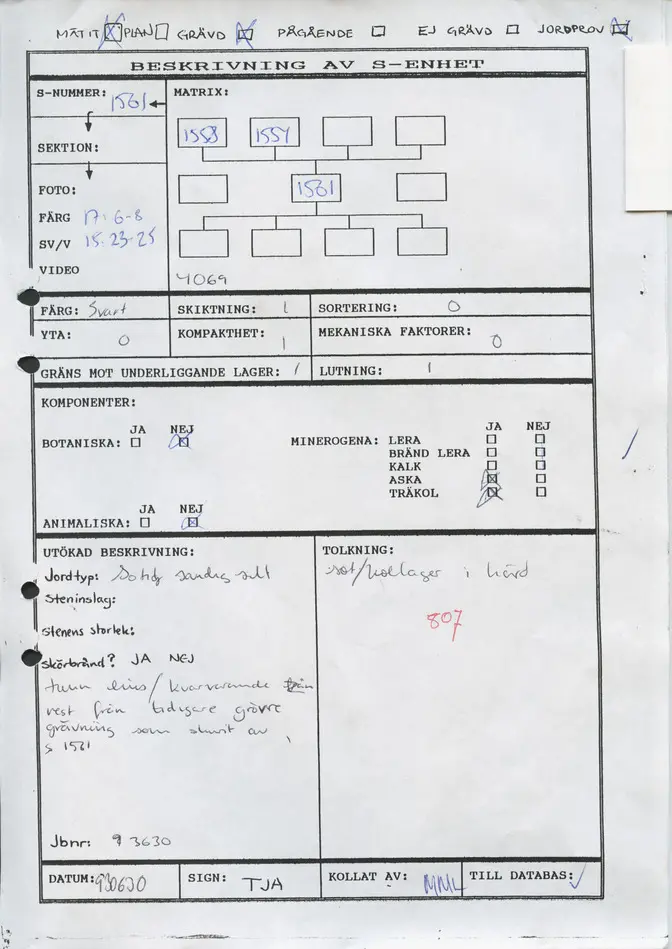 MÄT IT PLAN GRÄVD PÅGÅENDE EJ GRÄVD JORDPROV
BESKRIVNING AV S-ENHET
S-NUMMER: 1561
MATRIX:
1558 1557
SEKTION:
FOTO:
1561
FÄRG 17: 6-8
SV/V 15: 23-25
VIDEO
4069
FÄRG: Svart SKIKTNING: 1 SORTERING: 0
YTA: 0 KOMPAKTHET: 1 MEKANISKA FAKTORER: 0
GRÄNS MOT UNDERLIGGANDE LAGER: 1 LUTNING: 1
KOMPONENTER:
JA NEJ
BOTANISKA:
JA NEJ
MINEROGENA: LERA
BRÄND LERA
KALK
ASKA
TRÄKOL
JA NEJ
ANIMALISKA:
UTÖKAD BESKRIVNING:
Jordtyp: Sotig sandig silt
Steninslag:
Stenens storlek:
Skörbränd? JA NEJ
tunn lins/kvarvarande
rest från tidigare grövre
grävning som skurit av
S 1561
Jbnr: 9 3630
TOLKNING:
sot/kollager i härd
807
DATUM: 930630 SIGN: TJA KOLLAT AV: MML TILL DATABAS: